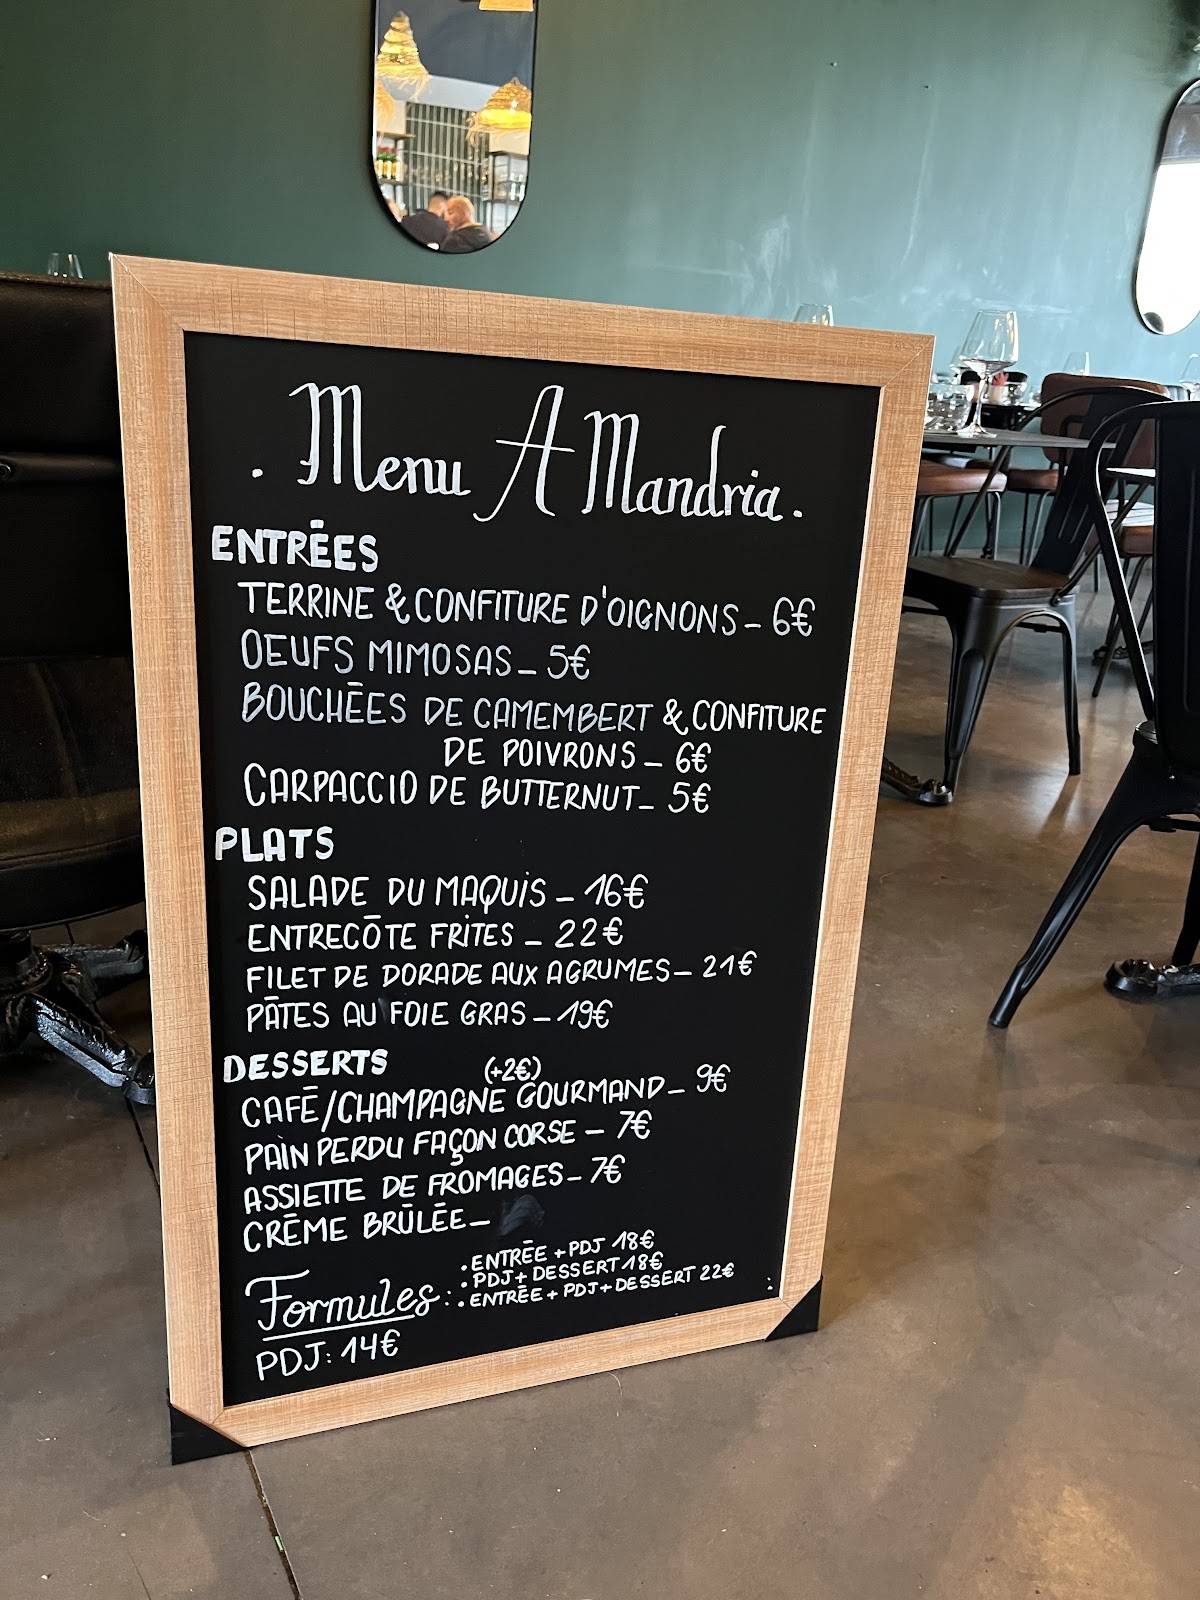 . Menu A Mandria .
ENTRÉES
TERRINE & CONFITURE D'OIGNONS - 6€
OEUFS MIMOSAS - 5€
BOUCHÉES DE CAMEMBERT & CONFITURE
DE POIVRONS - 6€
CARPACCIO DE BUTTERNUT - 5€
PLATS
SALADE DU MAQUIS - 16€
ENTRECÔTE FRITES - 22€
FILET DE DORADE AUX AGRUMES - 21€
PÂTES AU FOIE GRAS - 19€
DESSERTS
(+2€)
CAFÉ/CHAMPAGNE GOURMAND - 9€
PAIN PERDU FAÇON CORSE - 7€
ASSIETTE DE FROMAGES - 7€
CRÈME BRÛLÉE -
Formules :
• ENTRÉE + PDJ 18€
• PDJ + DESSERT 18€
• ENTRÉE + PDJ + DESSERT 22€
PDJ: 14€